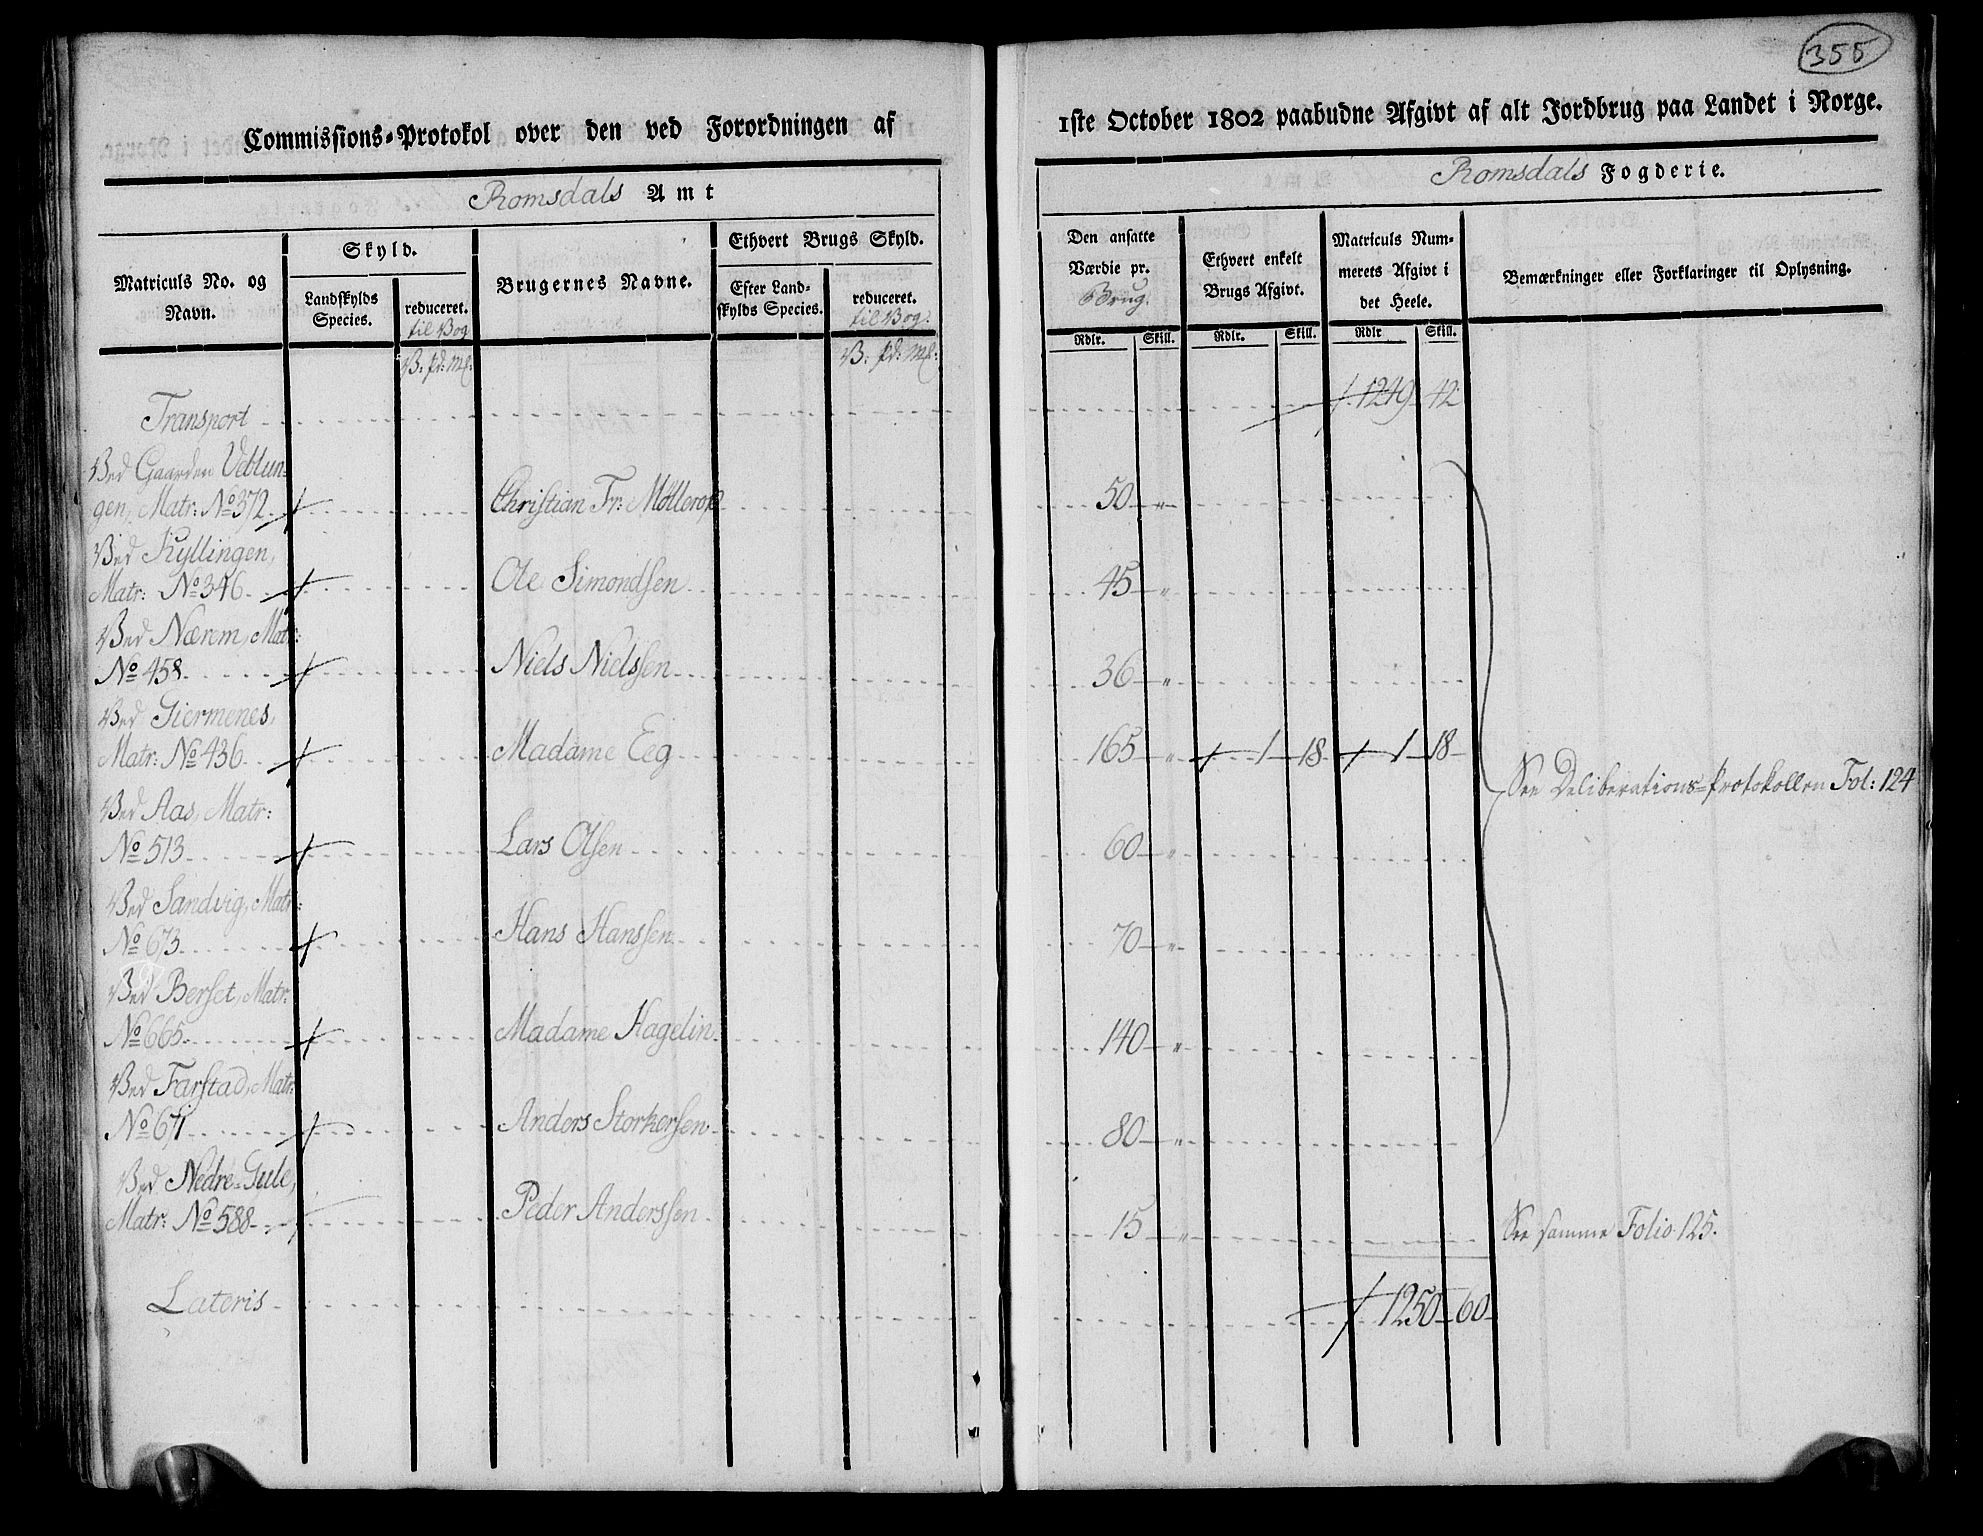 355
Commissions-Protokol over den ved Forordningen af 1ste October 1802 paabudne Afgivt af alt Jordbrug paa Landet i Norge.
Romsdals Amt
Romsdals Fogderie.
Matriculs No. og Navn.
Skyld.
Landskylds Species.
reduceret. til Bog
Brugernes Navne.
Ethvert Brugs Skyld.
Efter Landskylds Species.
reduceret. til Bog:
Den ansatte Værdie pr. Brug.
Ethvert enkelt Brugs Afgivt.
Matriculs Nummerets Afgivt i det Heele.
Bemærkninger eller Forklaringer til Oplysning.
V: pd: Mk:
V: pd: Mk:
Rdlr. Skill. Rdlr. Skill. Rdlr Skill.
Transport 1249 42
Ved Gaarden Veblun-
gen, Matr: No 372. Christian Fr: Møllerop 50 "
Ved Kyllingen,
Matr: No 346. Ole Simondsen 45 "
Ved Nærem, Matr:
No 458. Niels Nielssen 36 "
Ved Giermenes,
Matr: No 436. Madame Eeg 165 " 1 18 1 18
See Deliberations-Protokollen Fol: 124
Ved Aas, Matr:
No 513 Lars Olsen 60 "
Ved Sandvig, Matr:
No 673. Hans Hanssen 70 "
Ved Berset, Matr:
No 665. Madame Hagelin. 140 "
Ved Farstad, Matr:
No 671 Anders Storkersen 80 "
Ved Nedre-Gule,
Matr: No 588 Peder Anderssen 15 " See samme Folio 125.
Lateris 1250 60